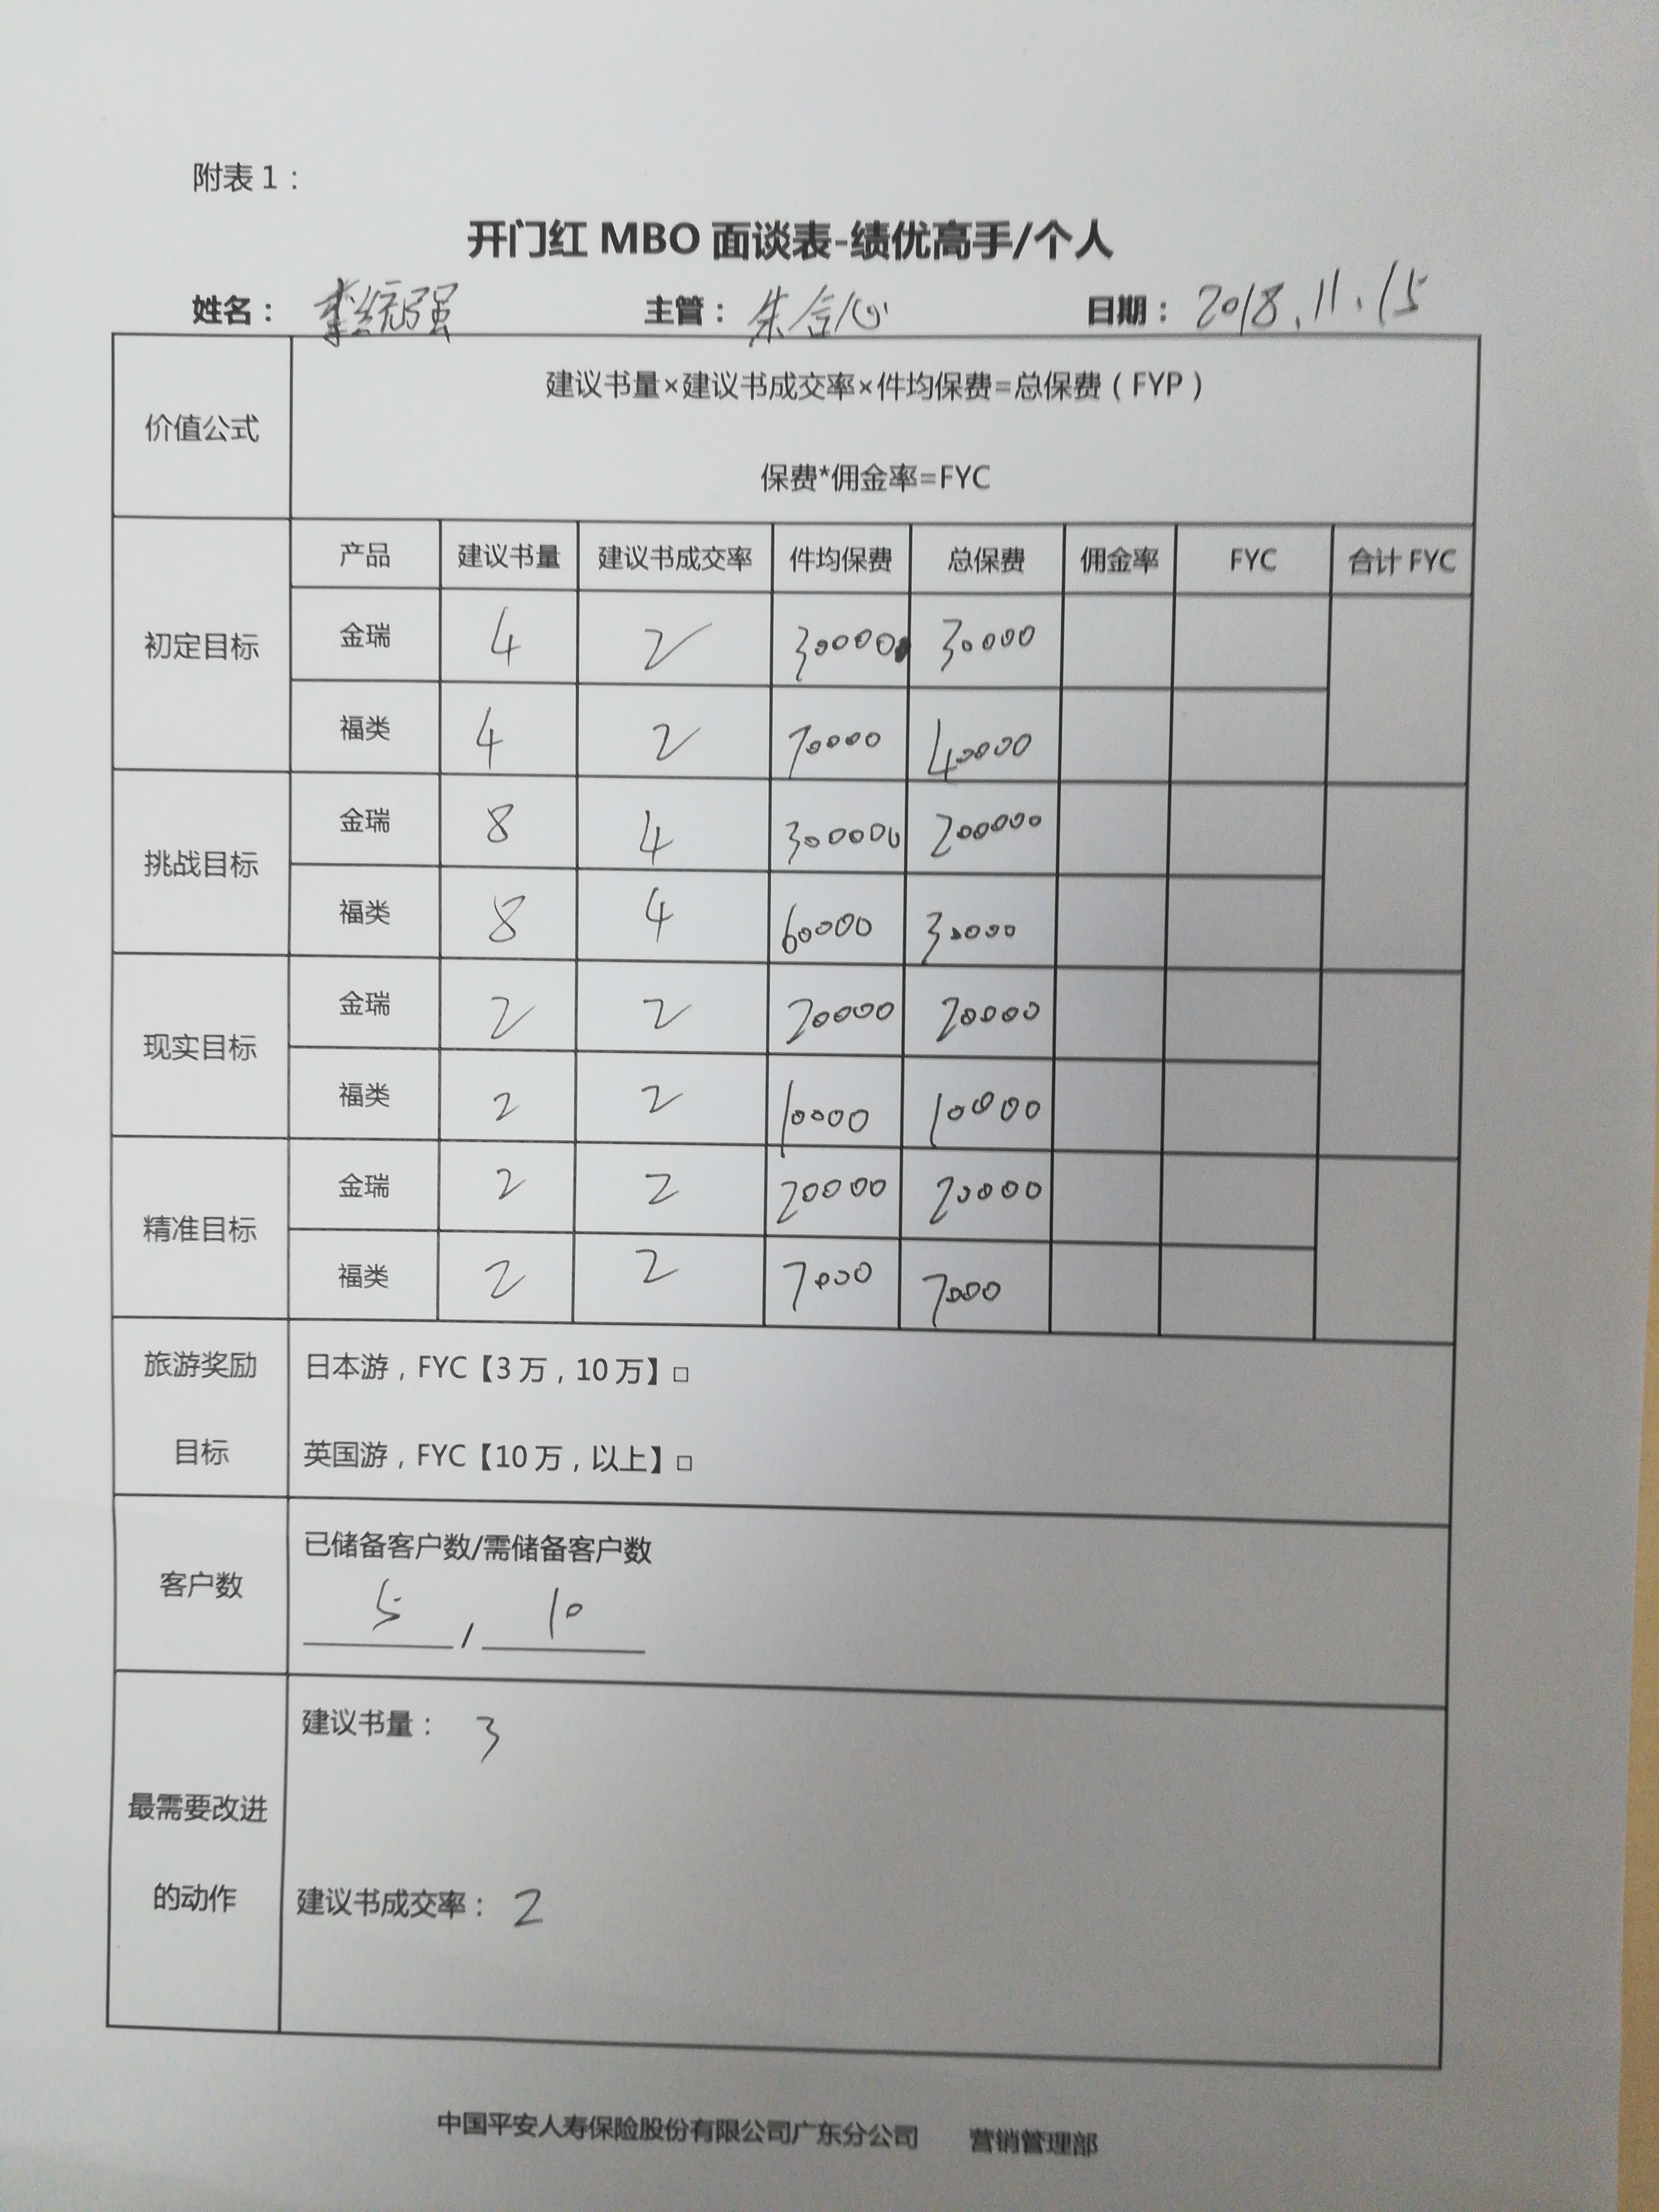 附表1：
开门红 MBO 面谈表-绩优高手/个人
姓名： 李统强 主管： 朱合心 日期： 2018.11.15
价值公式
建议书量×建议书成交率×件均保费=总保费（FYP）
保费*佣金率=FYC
产品 建议书量 建议书成交率 件均保费 总保费 佣金率 FYC 合计 FYC
初定目标
金瑞 4 2 30000 30000
福类 4 2 70000 40000
挑战目标
金瑞 8 4 300000 200000
福类 8 4 60000 30000
现实目标
金瑞 2 2 20000 20000
福类 2 2 10000 10000
精准目标
金瑞 2 2 20000 20000
福类 2 2 7000 7000
旅游奖励
目标
日本游，FYC【3万，10万】□
英国游，FYC【10万，以上】□
客户数
已储备客户数/需储备客户数
5 / 10
最需要改进
的动作
建议书量： 3
建议书成交率： 2
中国平安人寿保险股份有限公司广东分公司 营销管理部